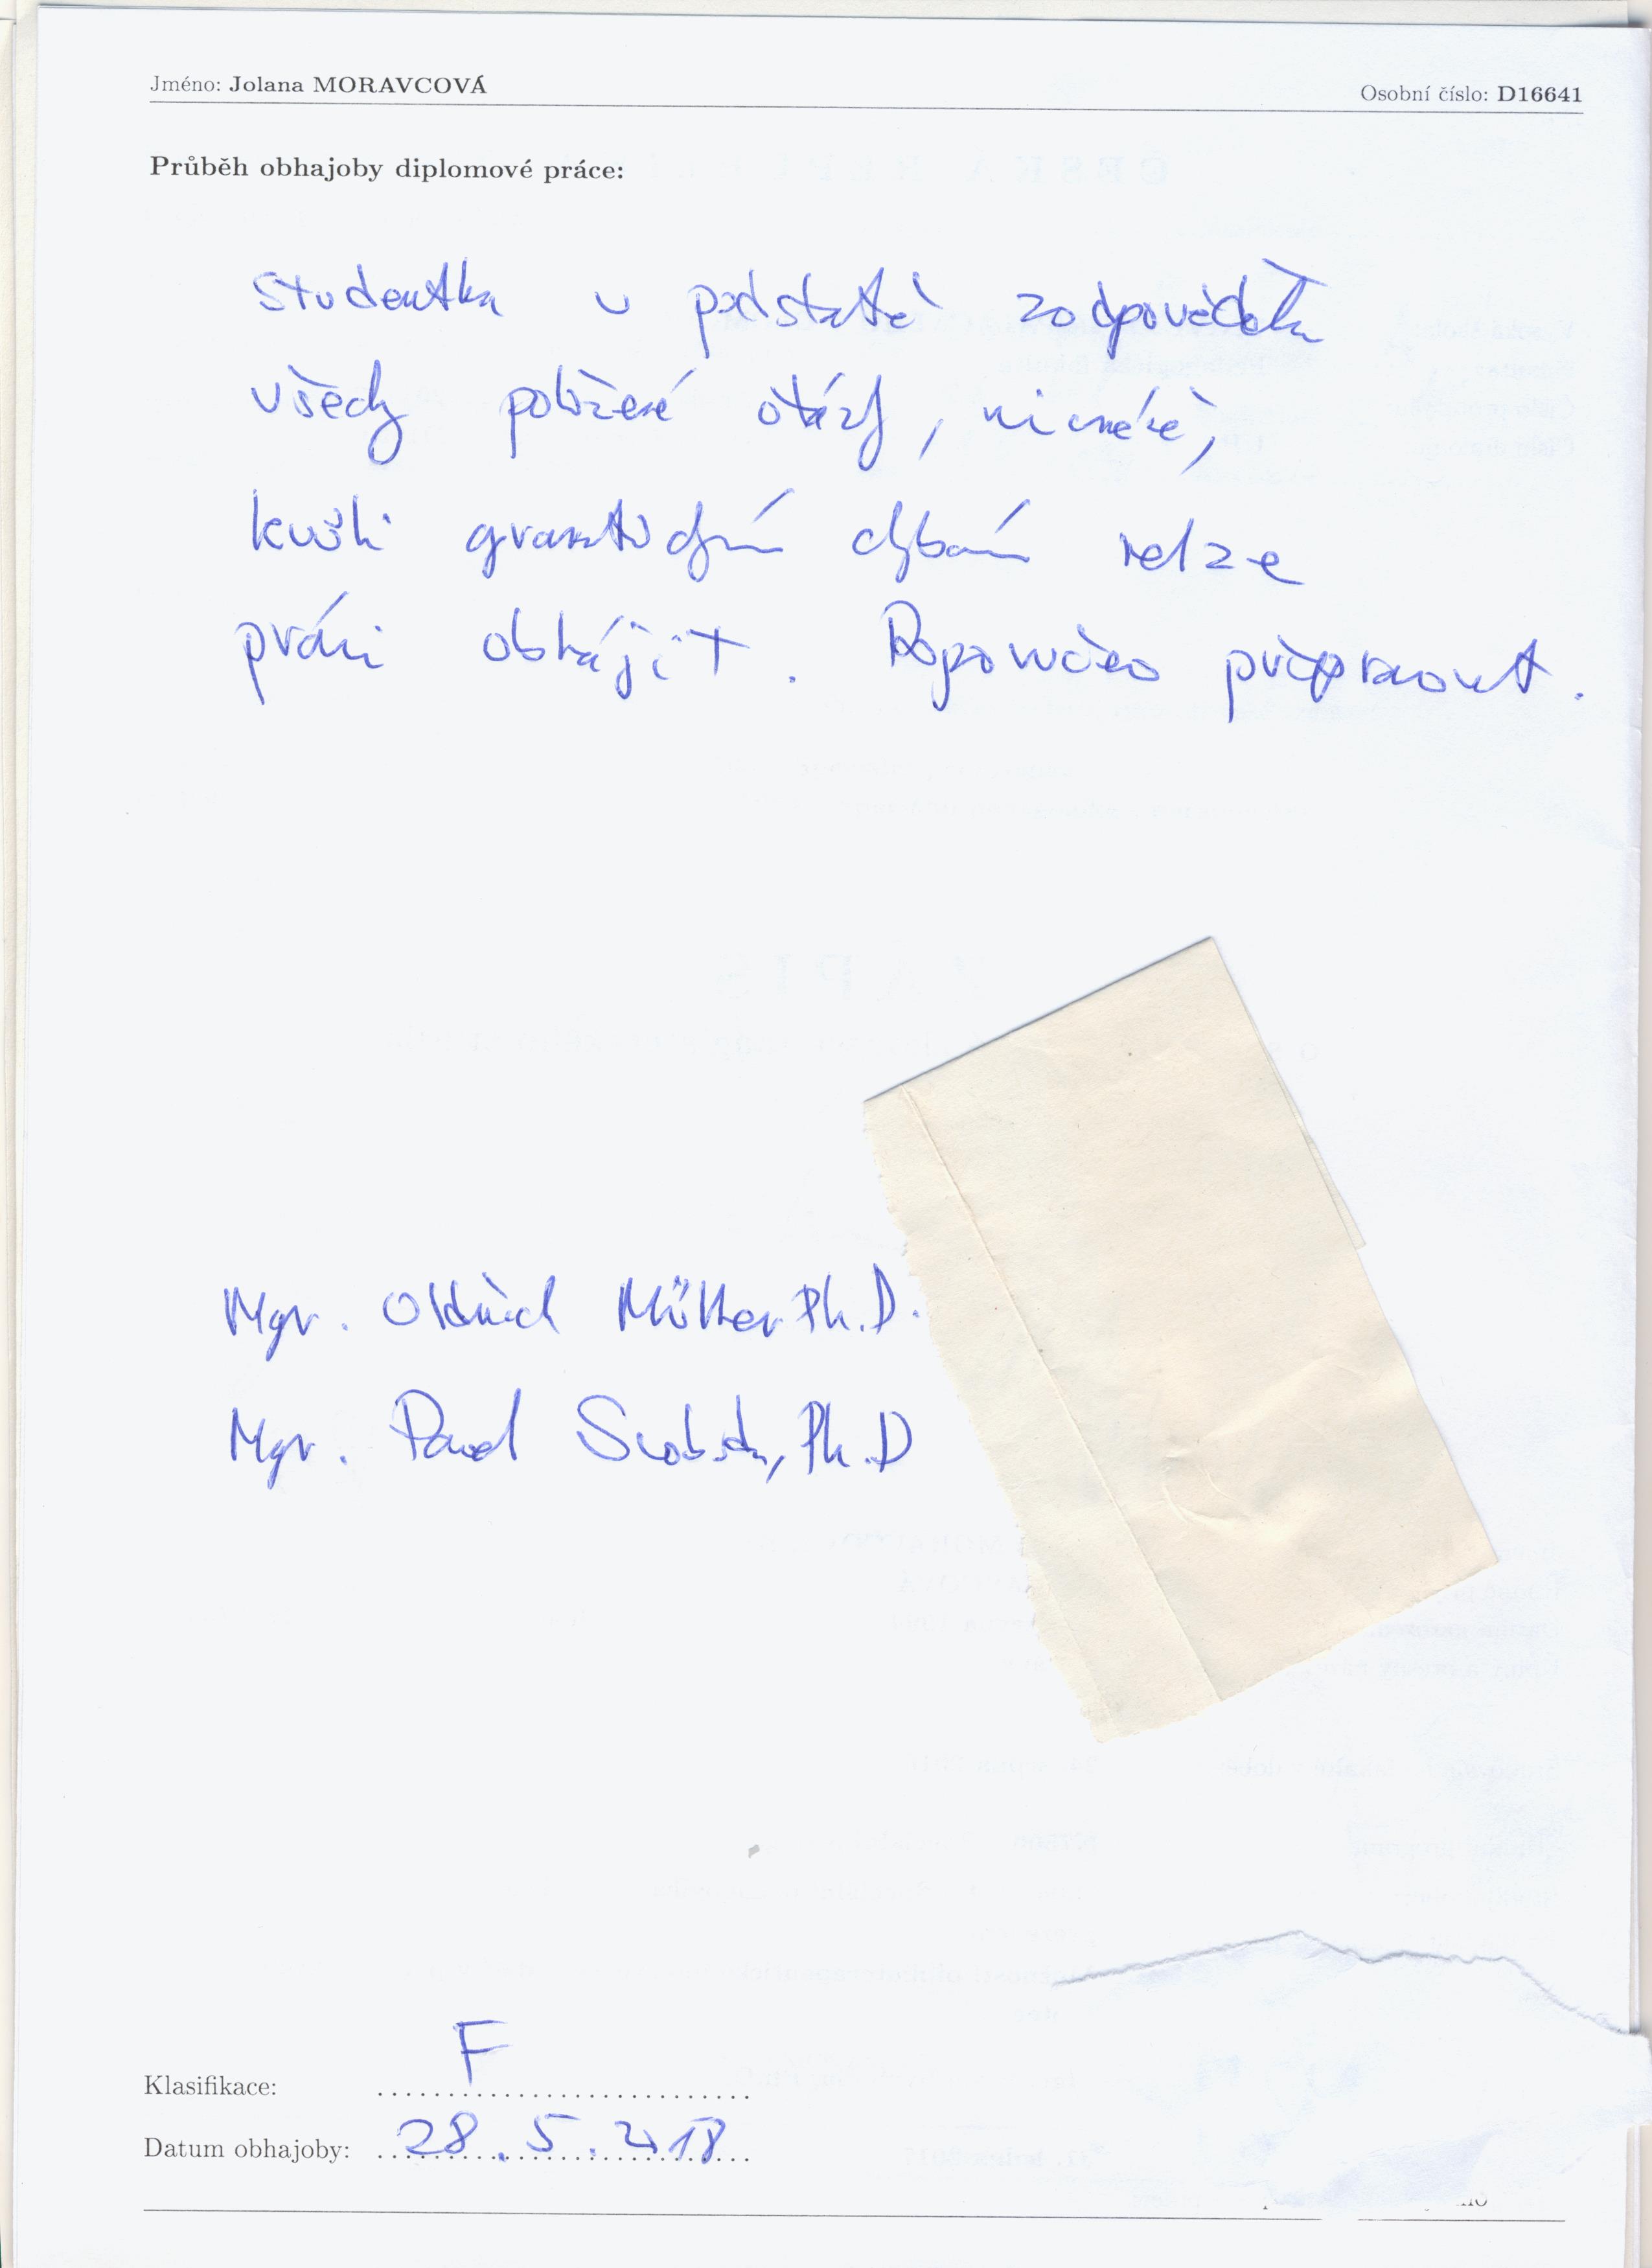 Jméno: Jolana MORAVCOVÁ
Osobní číslo: D16641
Průběh obhajoby diplomové práce:
Studentka v podstatě zodpověděla
všechy položené otázky, nicméně,
kvůli gramatickým chybám nelze
práci obhájit. Doporučeno přepracovat.
Mgr. Oldřich Müller Ph.D.
Mgr. Pavel Svoboda, Ph.D
F
Klasifikace:
Datum obhajoby: 28.5.2018